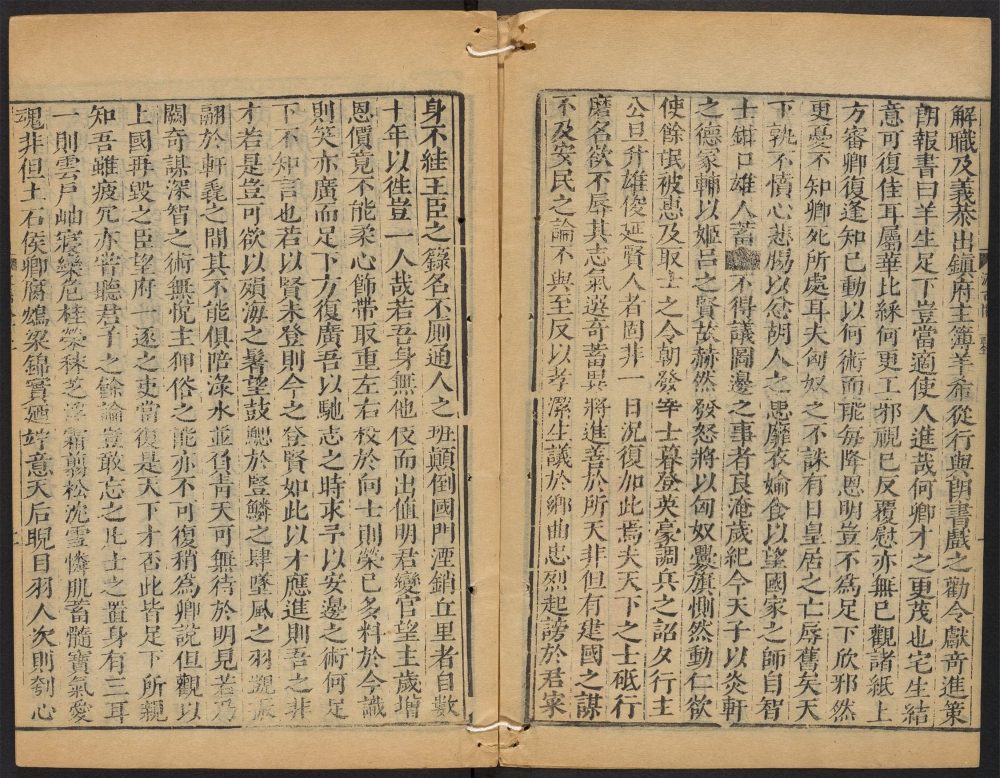 解職及義恭出鎮府主簿羊希從行與朗書戲之勸令獻奇進策
朗報書曰羊生足下豈當適使人進哉何卿才之更茂也宅生結
意可復佳耳屬華比綵何更工邪視已反覆慰亦無已觀諸紙上
方審卿復逢知已動以何術而能每降恩明豈不為足下欣邪然
更憂不知卿死所處耳夫匈奴之不誅有日皇居之亡辱舊矣天
下孰不憤心悲腸以忿胡人之患靡衣媮食以望國家之師自智
士鉗口雄人蓄不得議圖邊之事者良淹歲紀今天子以炎軒
之德冢輔以姬呂之賢故赫然發怒將以匈奴釁旗惻然動仁欲
使餘氓被惠及取士之令朝發宰士暮登英豪調兵之詔夕行主
公旦升雄俊延賢人者固非一日況復加此焉夫天下之士砥行
磨名欲不辱其志氣選奇蓄異將進善於所天非但有建國之謀
不及安民之論不與至反以孝潔生議於鄉曲忠烈起謗於君寀
身不絓王臣之籙名不厠通人之班顛倒國門湮銷丘里者自數
十年以徃豈一人哉若吾身無他伎而出值明君變官望主歲增
恩價竟不能柔心飾帶取重左右校於向士則榮已多料於今識
則笑亦廣而足下方復廣吾以馳志之時求予以安邊之術何足
下不知言也若以賢未登則今之登賢如此以才應進則吾之非
才若是豈可欲以殞海之鬐望鼓鰓於豎鱗之肆墜風之羽覬振
翮於軒毳之間其不能俱陪淥水並負青天可無待於明見若乃
闕奇謀深智之術無悅主狎俗之能亦不可復稍為卿說但觀以
上國再毀之臣望府一逐之吏當復是天下才否此皆足下所親
知吾雖疲宂亦嘗聽君子之餘論豈敢忘之凡士之置身有三耳
一則雲戶岫寢欒危桂榮秣芝浮霜翦松沈雪憐肌蓄髓寶氣愛
魂非但土石侯卿腐鴆梁錦實廼竚意天后睨目羽人次則刳心